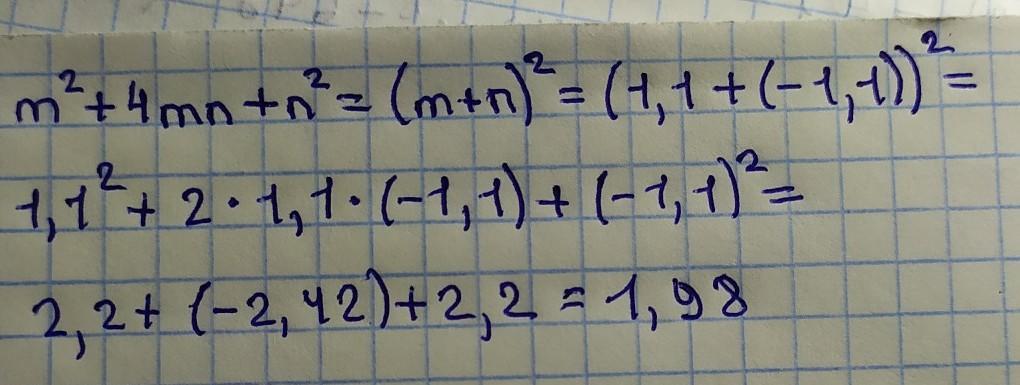 m² + 4mn + n² = (m+n)² = (1,1 + (-1,1))² =
1,1² + 2 · 1,1 · (-1,1) + (-1,1)² =
2,2 + (-2,42) + 2,2 = 1,98